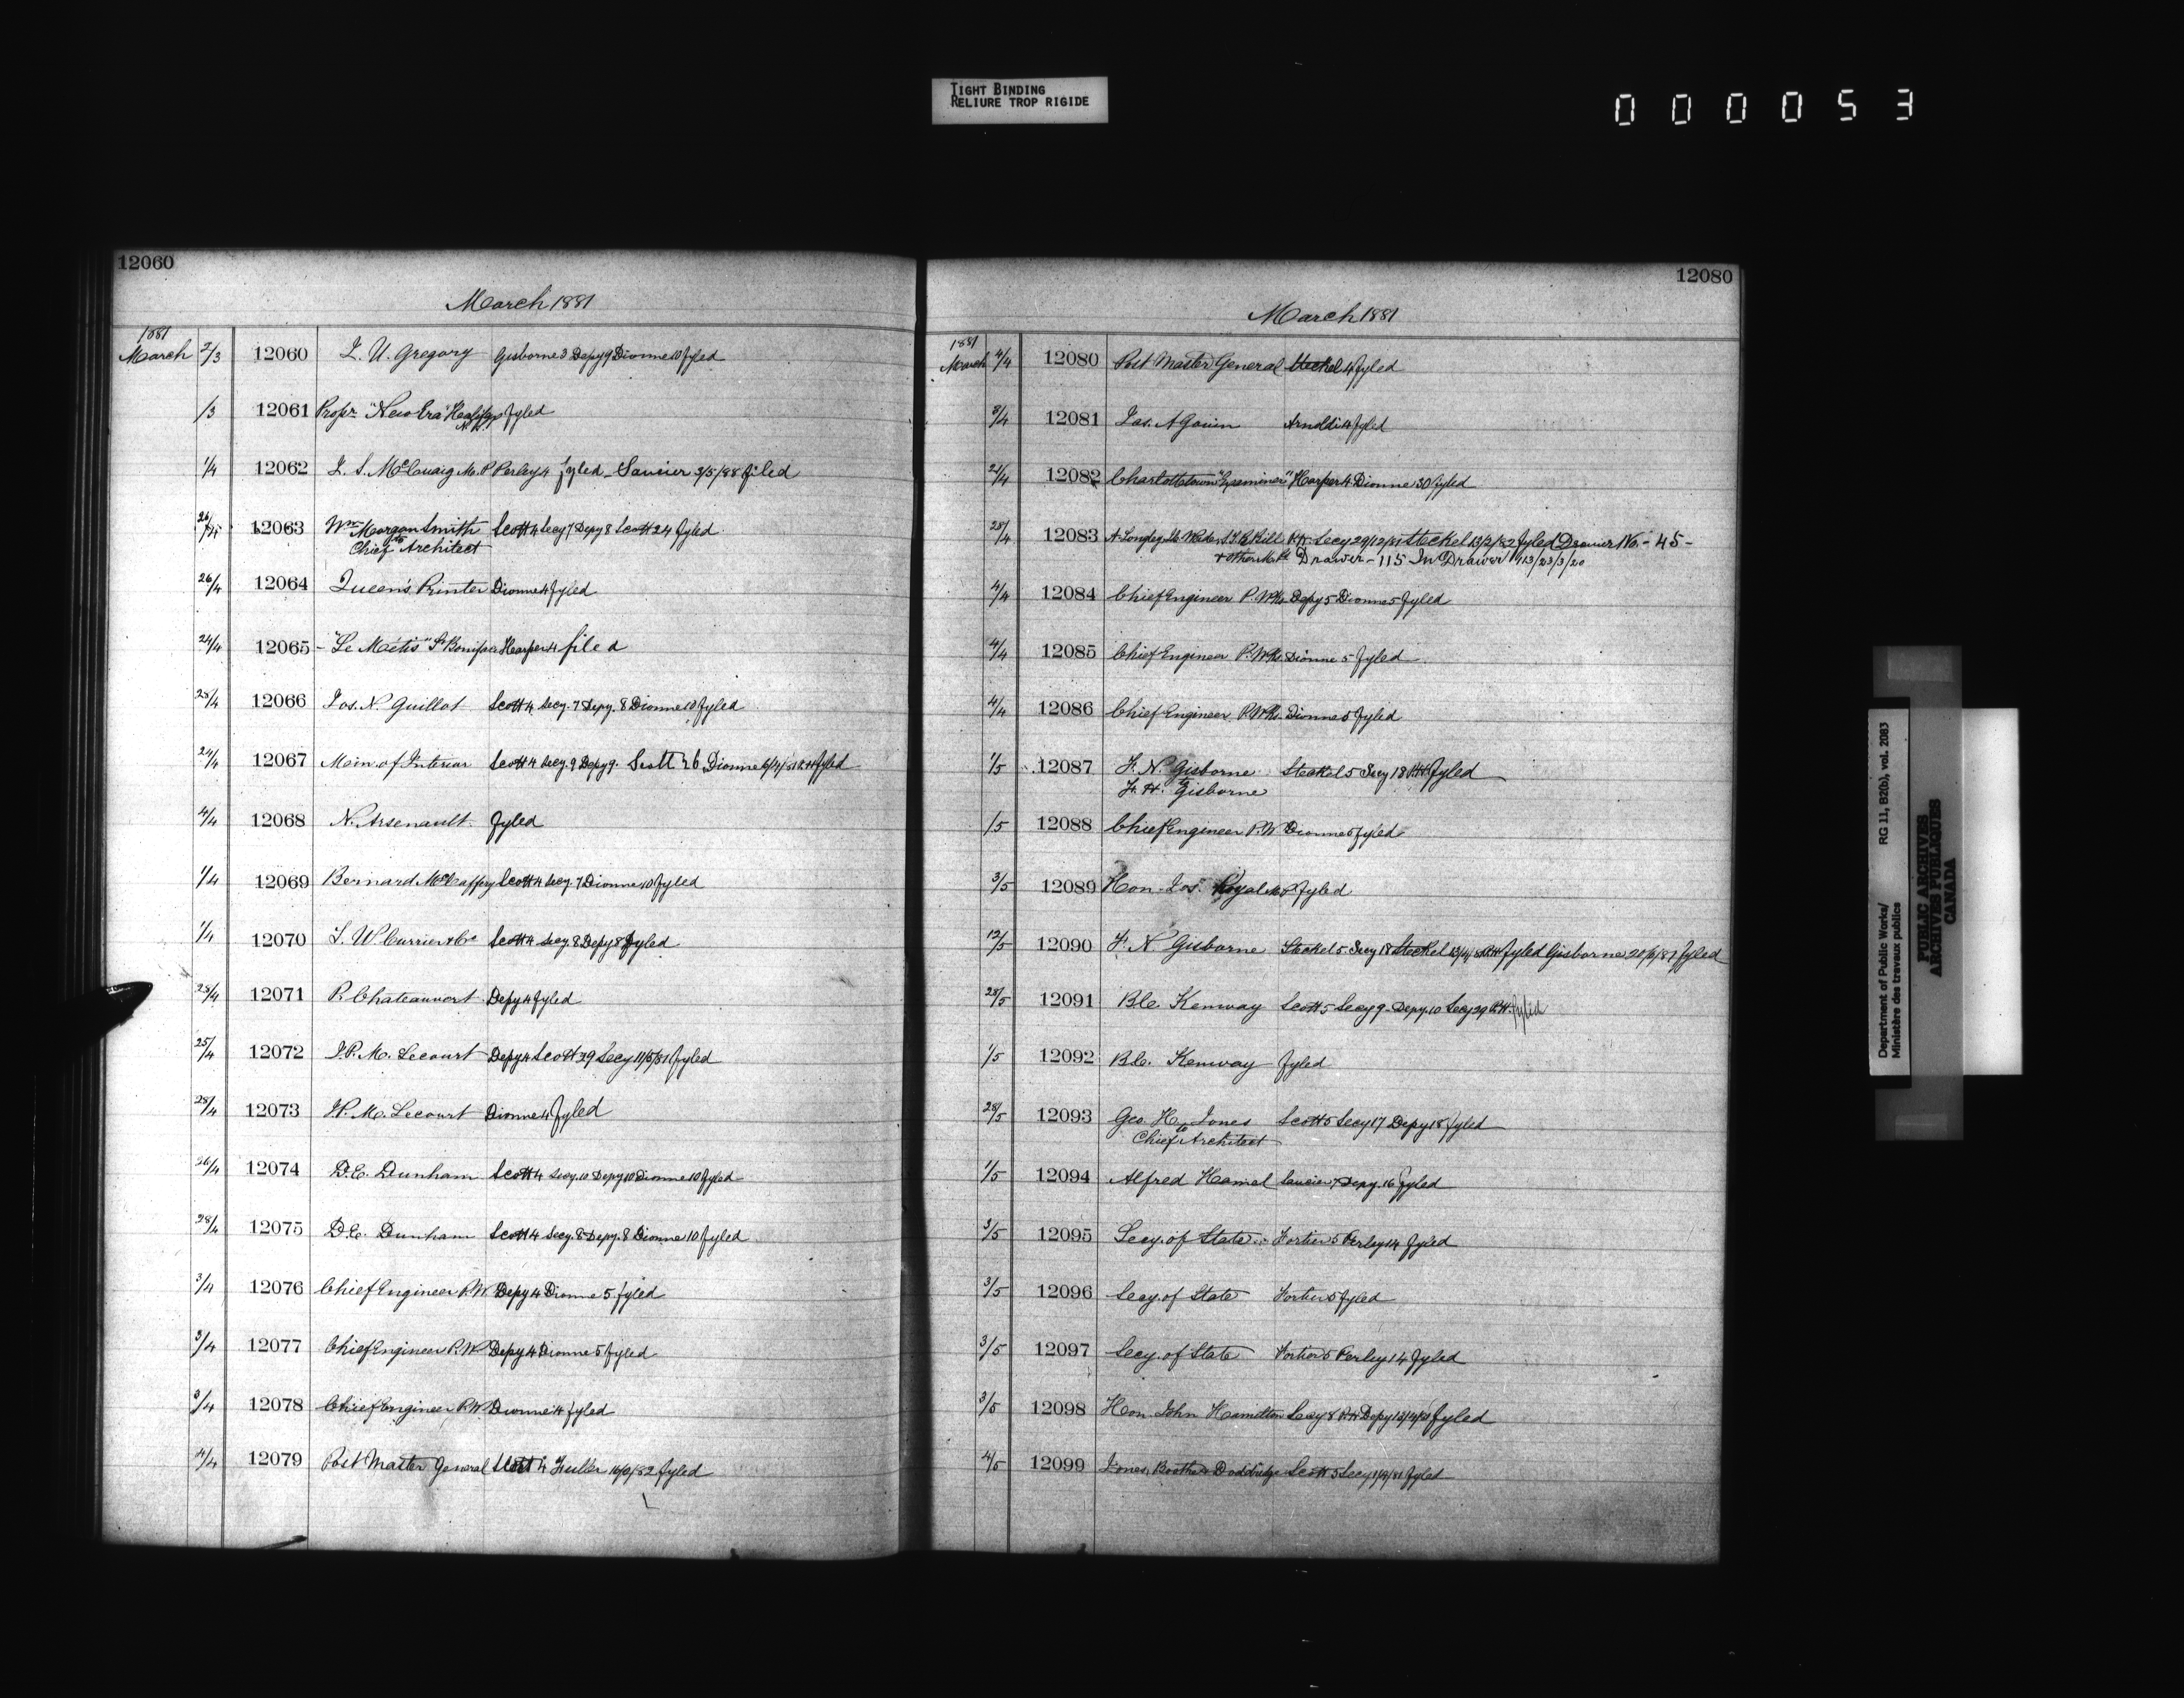 TIGHT BINDING
RELIURE TROP RIGIDE
000053
12060
March 1881
1881
March 2/3 12060 J. U. Gregory Gisborne 3 Depy 9 Dionne 10 fyled
/3 12061 Propr "New Era" Halifax fyled
N.S.
1/4 12062 J. S. McCuaig M.P. Perley 4 fyled - Saucier 3/5/88 filed
26/4 12063 Wm Morgan Smith Scott 4 Secy 7 Depy 8 Scott 24 fyled
to Chief Architect
26/4 12064 Queen's Printer Dionne 4 fyled
24/4 12065 - "Le Métis" St Boniface Harper 4 filed
28/4 12066 Jos. N. Guillot Scott 4 Secy. 7 Depy. 8 Dionne 10 fyled
24/4 12067 Mem. of Interior Scott 4 Secy. 9 Depy 9. Scott 26 Dionne fyled
4/4 12068 N. Arsenault fyled
1/4 12069 Bernard McCaffery Scott 4 Secy. 7 Dionne 10 fyled
1/4 12070 L. W. Currier & Co Scott 4 Secy. 8 Depy 8 fyled
28/4 12071 P. Chateauvert Depy 4 fyled
25/4 12072 J.P.M. Lecourt Depy 4 Scott 29 Secy 11/5/81 fyled
28/4 12073 J.P.M. Lecourt Dionne 4 fyled
26/4 12074 D.E. Dunham Scott 4 Secy. 10 Depy 10 Dionne 10 fyled
28/4 12075 D.E. Dunham Scott 4 Secy. 8 Depy. 8 Dionne 10 fyled
3/4 12076 Chief Engineer P.W. Depy 4 Dionne 5 fyled
3/4 12077 Chief Engineer P.W. Depy 4 Dionne 5 fyled
3/4 12078 Chief Engineer P.W. Dionne 4 fyled
4/4 12079 Post Master General Scott 4 Fuller fyled
12080
March 1881
1881
March 4/4 12080 Post Master General Steckel 4 fyled
3/4 12081 Jas. A Gouin Arnoldi 4 fyled
2/4 12082 Charlottetown "Examiner" Harper 4 Dionne 30 fyled
28/4 12083 A Longley Secy 29/12/81 Steckel 13/2/82 fyled Drawer No. - 45 -
& others Drawer - 115 In Drawer 113/23/3/20
4/4 12084 Chief Engineer P. Wks Depy 5 Dionne 5 fyled
4/4 12085 Chief Engineer P. Wks. Dionne 5 fyled
4/4 12086 Chief Engineer P. Wks. Dionne 5 fyled
1/5 12087 F. N. Gisborne Steckel 5 Secy 18 R.H. fyled
to F. H. Gisborne
/5 12088 Chief Engineer P.W Dionne 5 fyled
3/5 12089 Hon. Jos. Royal M.P. fyled
12/5 12090 F. N Gisborne Steckel 5 Secy 18 Steckel fyled Gisborne 20/6/87 fyled
28/5 12091 B.C. Kenway Scott 5 Secy 9 Depy. 10 Secy 29 R.H. fyled
1/5 12092 B.C. Kenway fyled
28/5 12093 Geo. H. Jones Scott 5 Secy 17 Depy 18 fyled
to Chief Architect
1/5 12094 Alfred Hamel Saucier 7 Depy. 16 fyled
3/5 12095 Secy. of State Fortier 5 Perley 14 fyled
3/5 12096 Secy. of State Fortier 5 fyled
3/5 12097 Secy. of State Fortier 5 Perley 14 fyled
3/5 12098 Hon. John Hamilton Secy 8 R.H. Depy fyled
4/5 12099 Jones, Booth & Doddridge Scott 5 Secy fyled
Department of Public Works/ RG 11, B2(b), vol. 2083
Ministère des travaux publics
PUBLIC ARCHIVES
ARCHIVES PUBLIQUES
CANADA